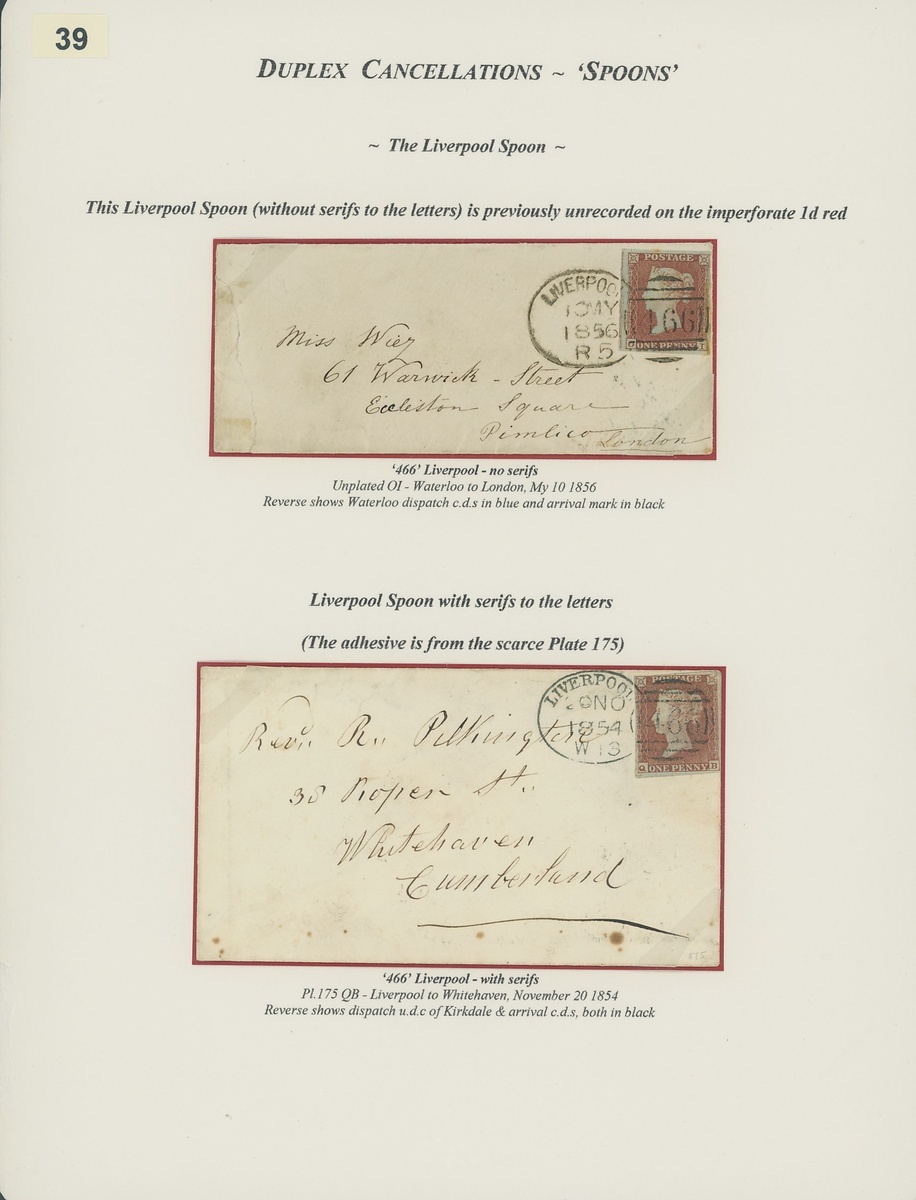 39
DUPLEX CANCELLATIONS ~ ‘SPOONS’
~ The Liverpool Spoon ~
This Liverpool Spoon (without serifs to the letters) is previously unrecorded on the imperforate 1d red
LIVERPOO
10MY
1856
R5
POSTAGE
466
ONE PENNY
Miss
61 Warwick - Street
Eccleston Square
Pimlico London
‘466’ Liverpool - no serifs
Unplated OI - Waterloo to London, My 10 1856
Reverse shows Waterloo dispatch c.d.s in blue and arrival mark in black
Liverpool Spoon with serifs to the letters
(The adhesive is from the scarce Plate 175)
LIVERPOOL
20NO
1854
W13
POSTAGE
466
Q ONE PENNY B
Revd. R. Pilkington
38 Roper St.
Whitehaven
Cumberland
‘466’ Liverpool - with serifs
Pl.175 QB - Liverpool to Whitehaven, November 20 1854
Reverse shows dispatch u.d.c of Kirkdale & arrival c.d.s, both in black